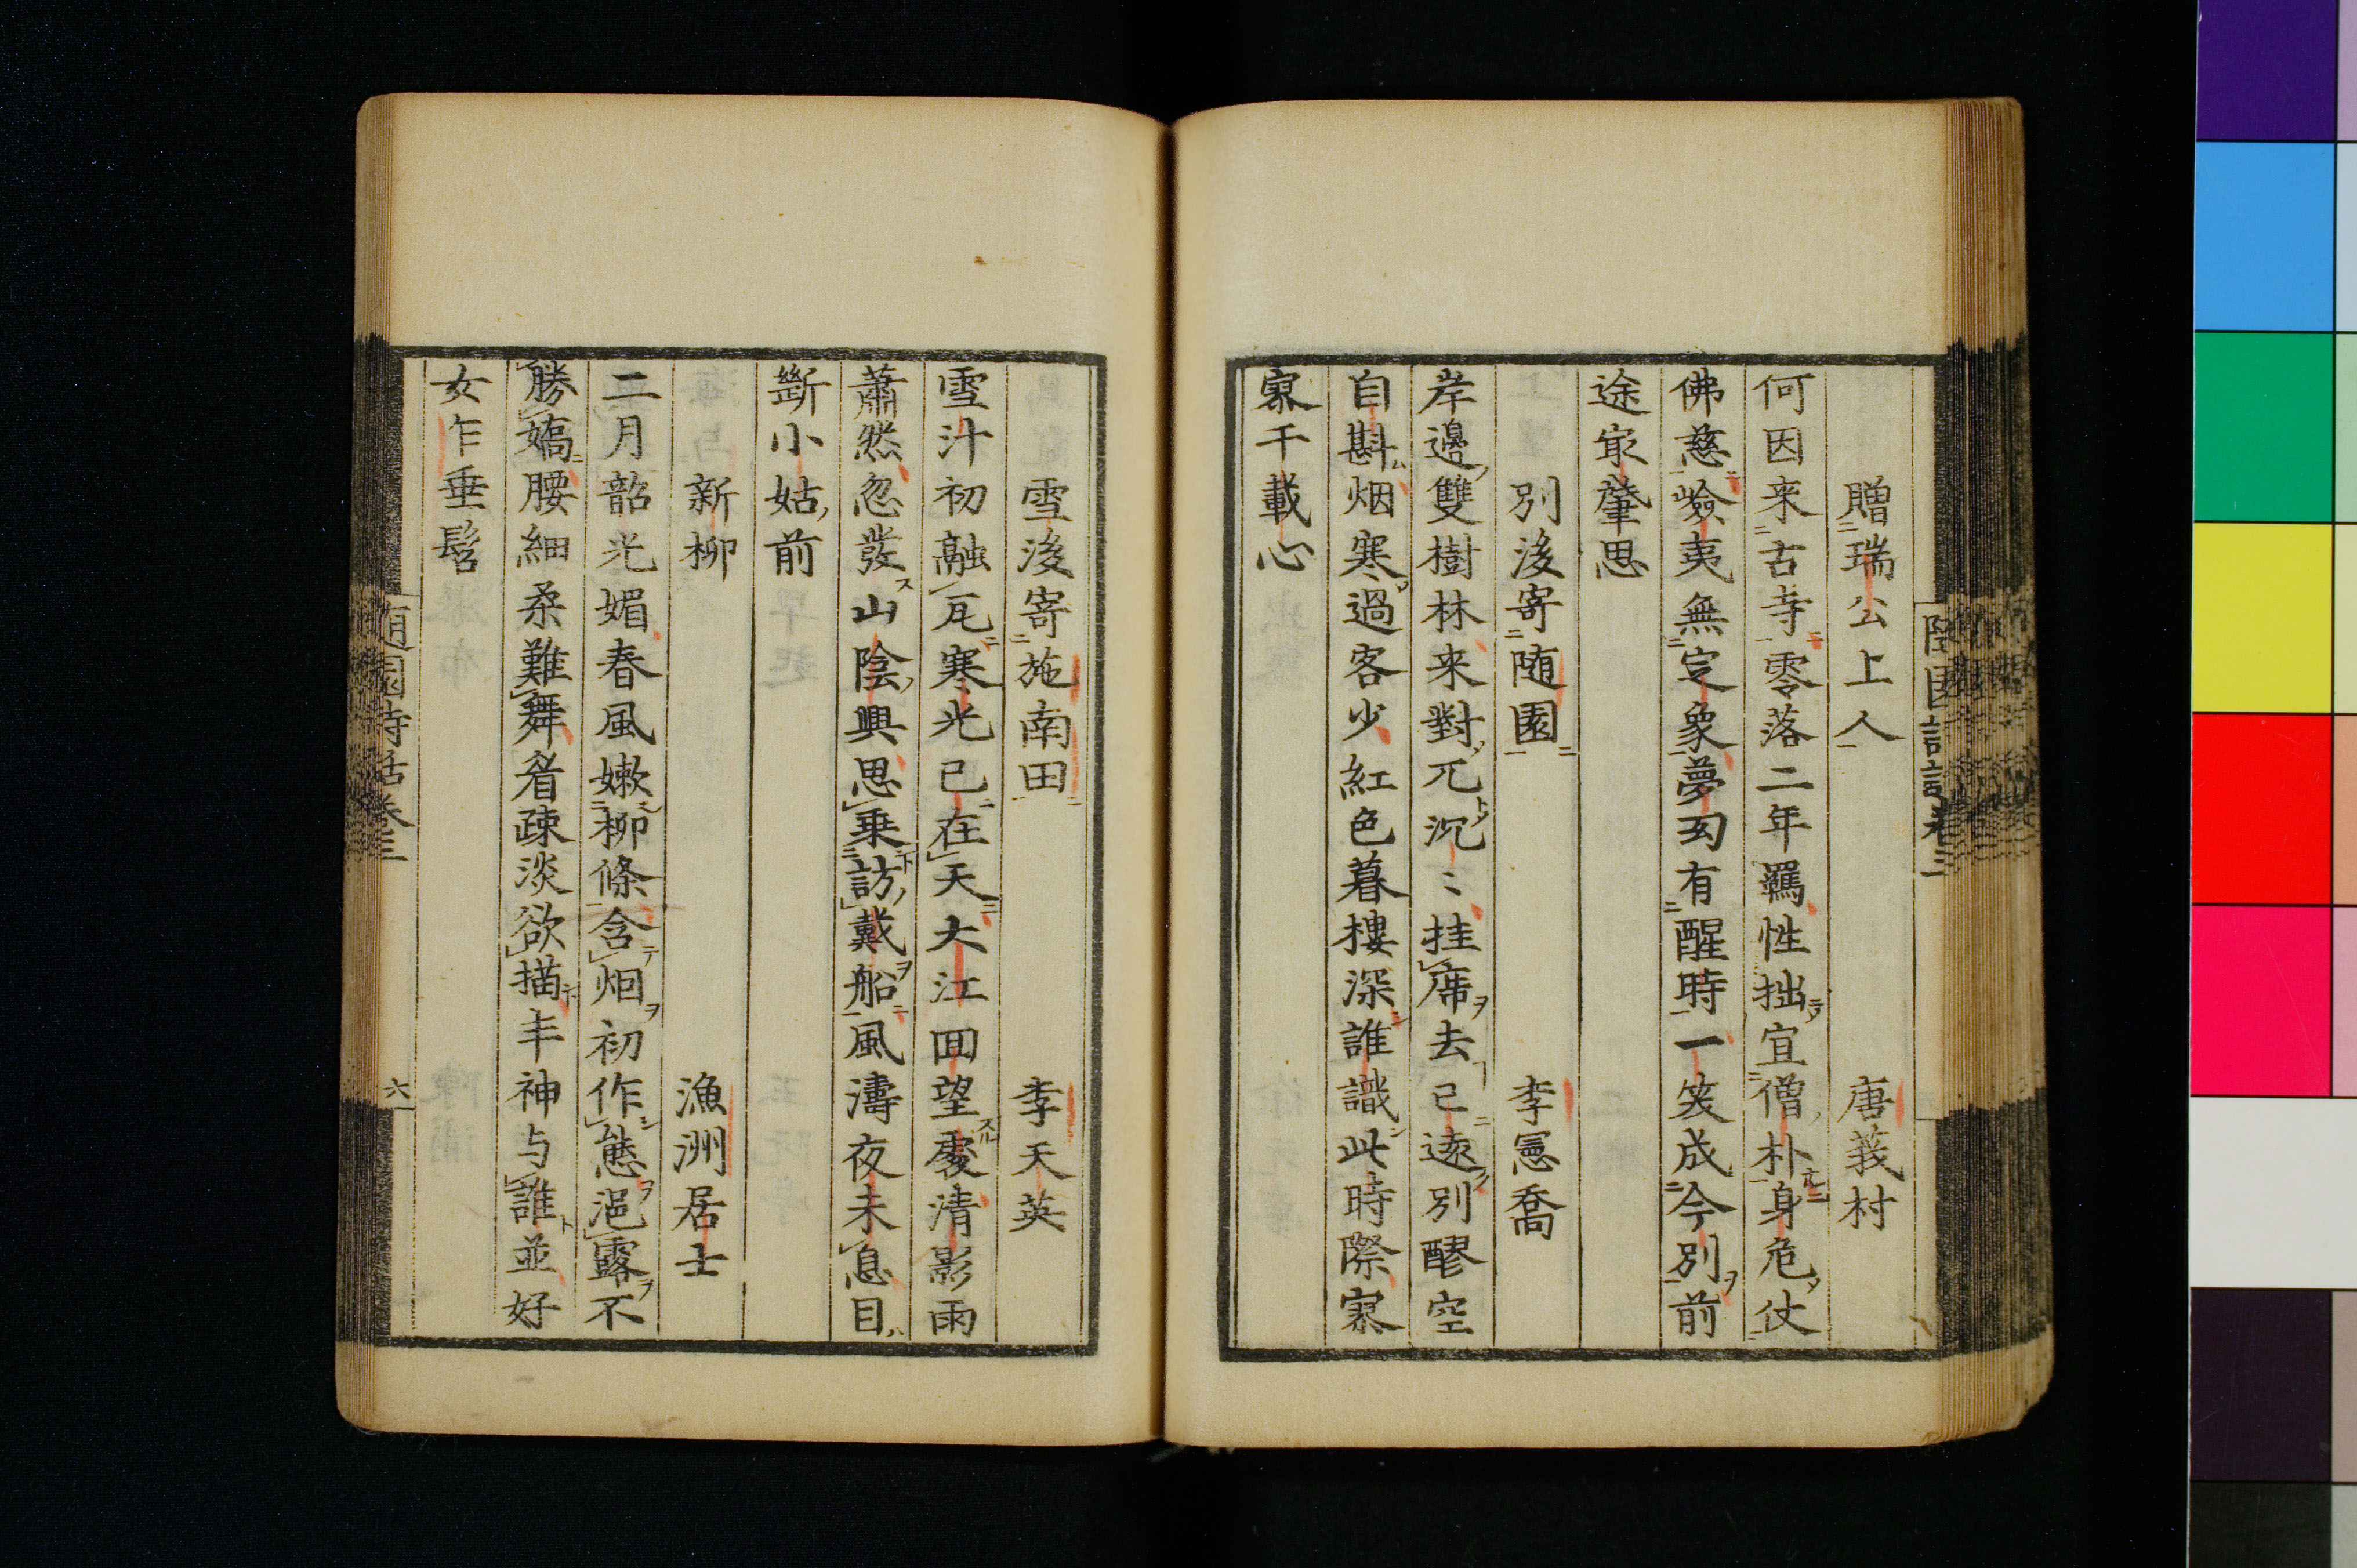 贈瑞公上人　唐莪村
何因来古寺零落二年羈性拙宜僧朴身危仗
佛慈嶮夷無定象夢幻有醒時一笑成今別前
途㝡肇思
別後寄随園　李憲喬
岸邊雙樹林来對兀沉〻挂席去已遠別醪空
自斟烟寒過客少紅色暮樓深誰識此時際寂
寂千載心
雪後寄施南田　李天英
雪汁初融瓦寒光已在天大江回望處清影雨
蕭然忽發山陰興思乗訪戴船風濤夜未息目
斷小姑前
新柳　漁洲居士
二月韶光媚春風嫩柳條含烟初作態浥露不
勝嬌腰細桑難舞眉疎淡欲描丰神与誰並好
女乍垂髫
随園詩話巻三
六